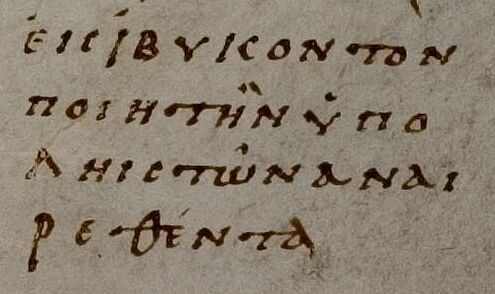 εἰς ἴβυκον τὸν
ποιητὴν ὑπὸ
ληιστῶν ἀναι
ρεθέντα